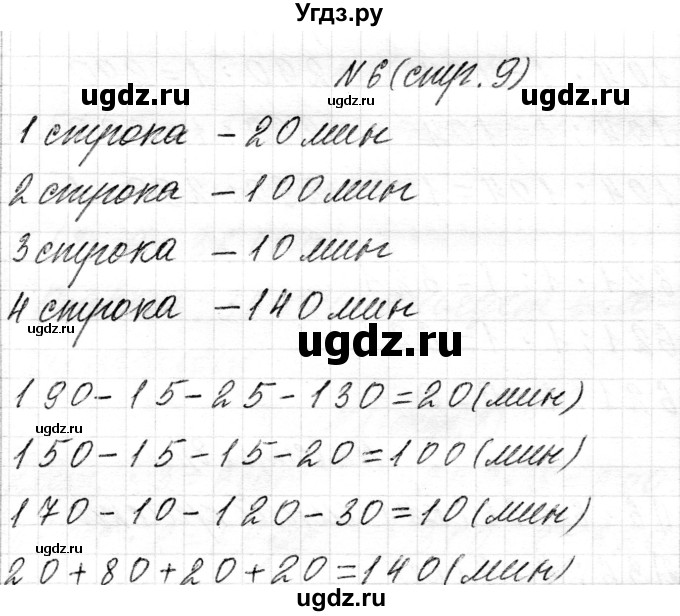 Угдз.ру
N 6 (стр. 9)
ugdz.ru ugdz.ru ugdz.ru
1 строка – 20 мин
2 строка – 100 мин
ugdz.ru ugdz.ru
3 строка – 10 мин
4 строка – 140 мин
ugdz.ru ugdz.ru
190 – 15 – 25 – 130 = 20 (мин)
150 – 15 – 15 – 20 = 100 (мин)
ugdz.ru ugdz.ru
170 – 10 – 120 – 30 = 10 (мин)
ugdz.ru ugdz.ru
20 + 80 + 20 + 20 = 140 (мин)